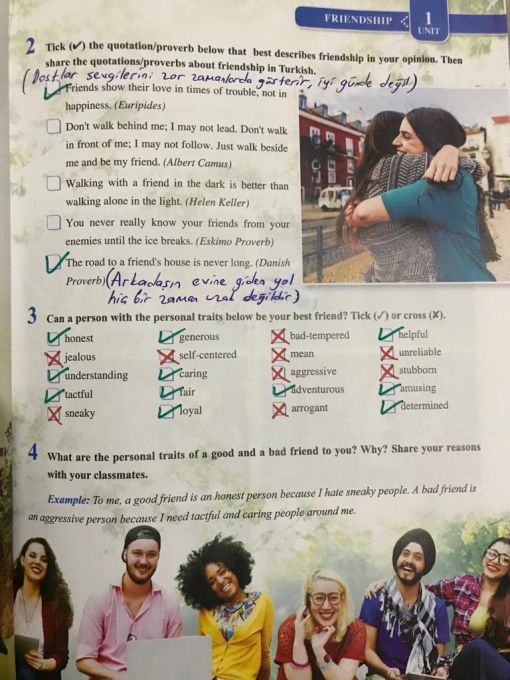 FRIENDSHIP
1
UNIT
2 Tick (✔) the quotation/proverb below that best describes friendship in your opinion. Then
share the quotations/proverbs about friendship in Turkish.
(Dostlar sevgilerini zor zamanlarda gösterir, iyi günde değil)
Friends show their love in times of trouble, not in
happiness. (Euripides)
Don't walk behind me; I may not lead. Don't walk
in front of me; I may not follow. Just walk beside
me and be my friend. (Albert Camus)
Walking with a friend in the dark is better than
walking alone in the light. (Helen Keller)
You never really know your friends from your
enemies until the ice breaks. (Eskimo Proverb)
The road to a friend's house is never long. (Danish
Proverb) (Arkadaşın evine giden yol
hiç bir zaman uzak değildir)
3 Can a person with the personal traits below be your best friend? Tick (✓) or cross (✗).
honest generous bad-tempered helpful
jealous self-centered mean unreliable
understanding caring aggressive stubborn
tactful fair adventurous amusing
sneaky loyal arrogant determined
4 What are the personal traits of a good and a bad friend to you? Why? Share your reasons
with your classmates.
Example: To me, a good friend is an honest person because I hate sneaky people. A bad friend is
an aggressive person because I need tactful and caring people around me.